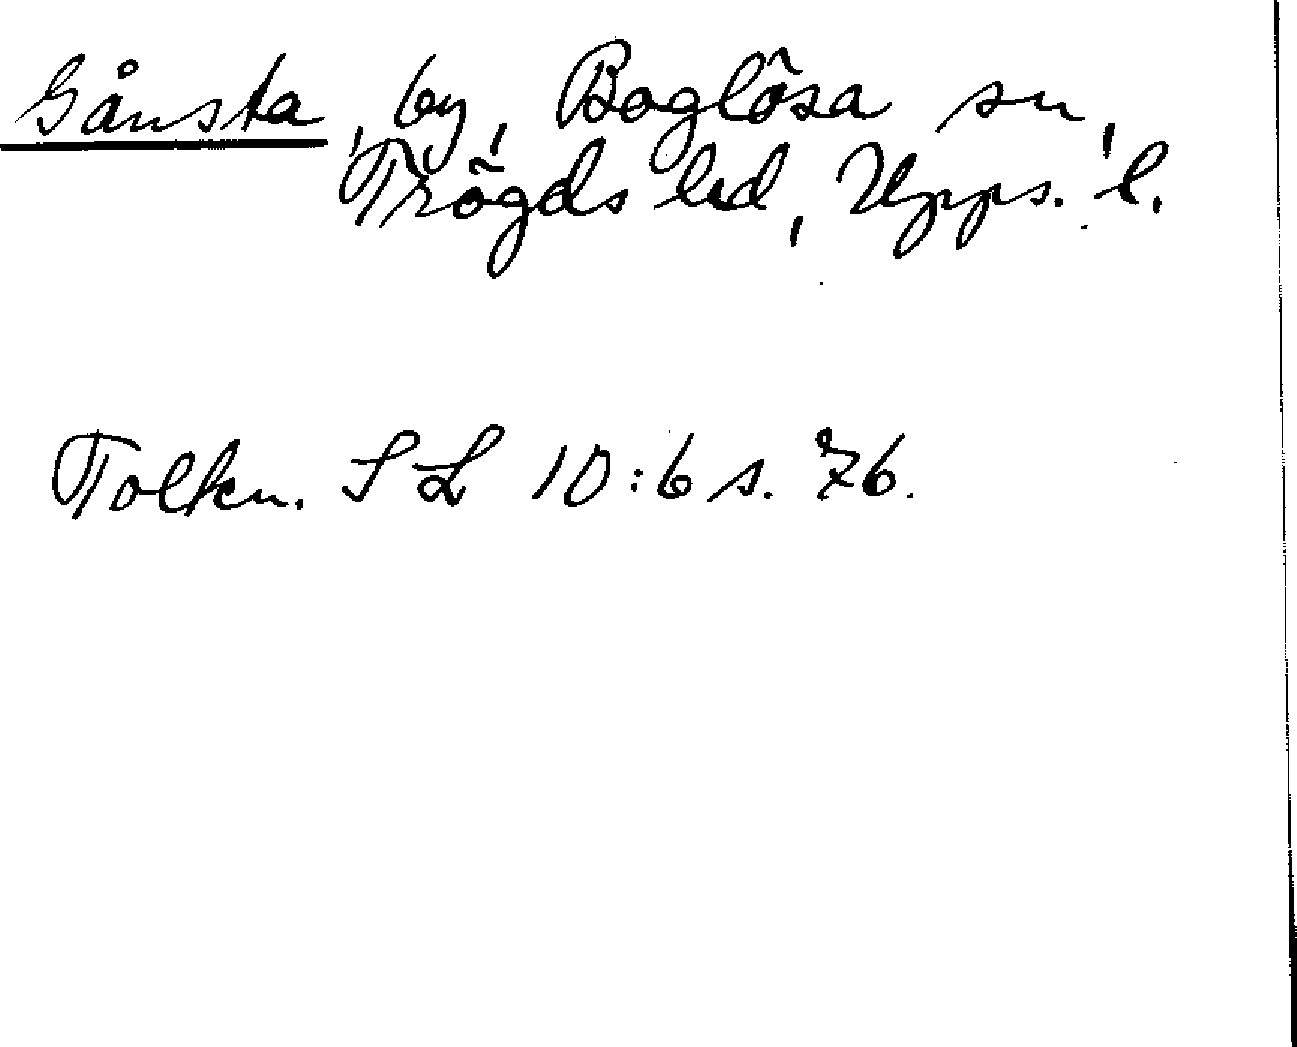 Gånsta, by, Boglösa sn,
Trögds hd, Upps. l.
Tolkn. SL 10:6 s. 76.